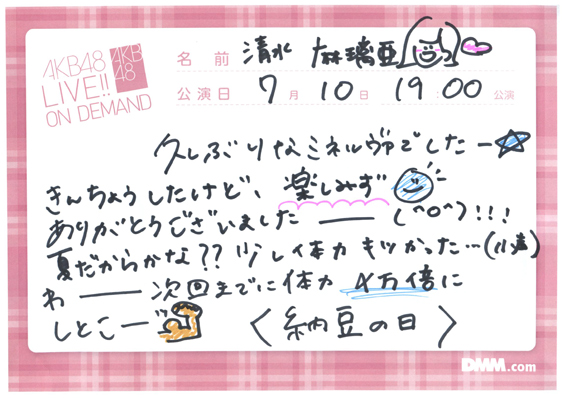 AKB48
LIVE!!
ON DEMAND
AKB
48
名前 清水 麻璃亜
公演日 7月 10日 19:00 公演
久しぶりなミネルヴァでしたー
きんちょうしたけど、楽しみず
ありがとうございました ── (^O^)!!!
夏だからかな?? 少し体力 キツかった…(小声)
わ ── 次回までに体力 4万倍に
しとこー
〈納豆の日〉
DMM.com